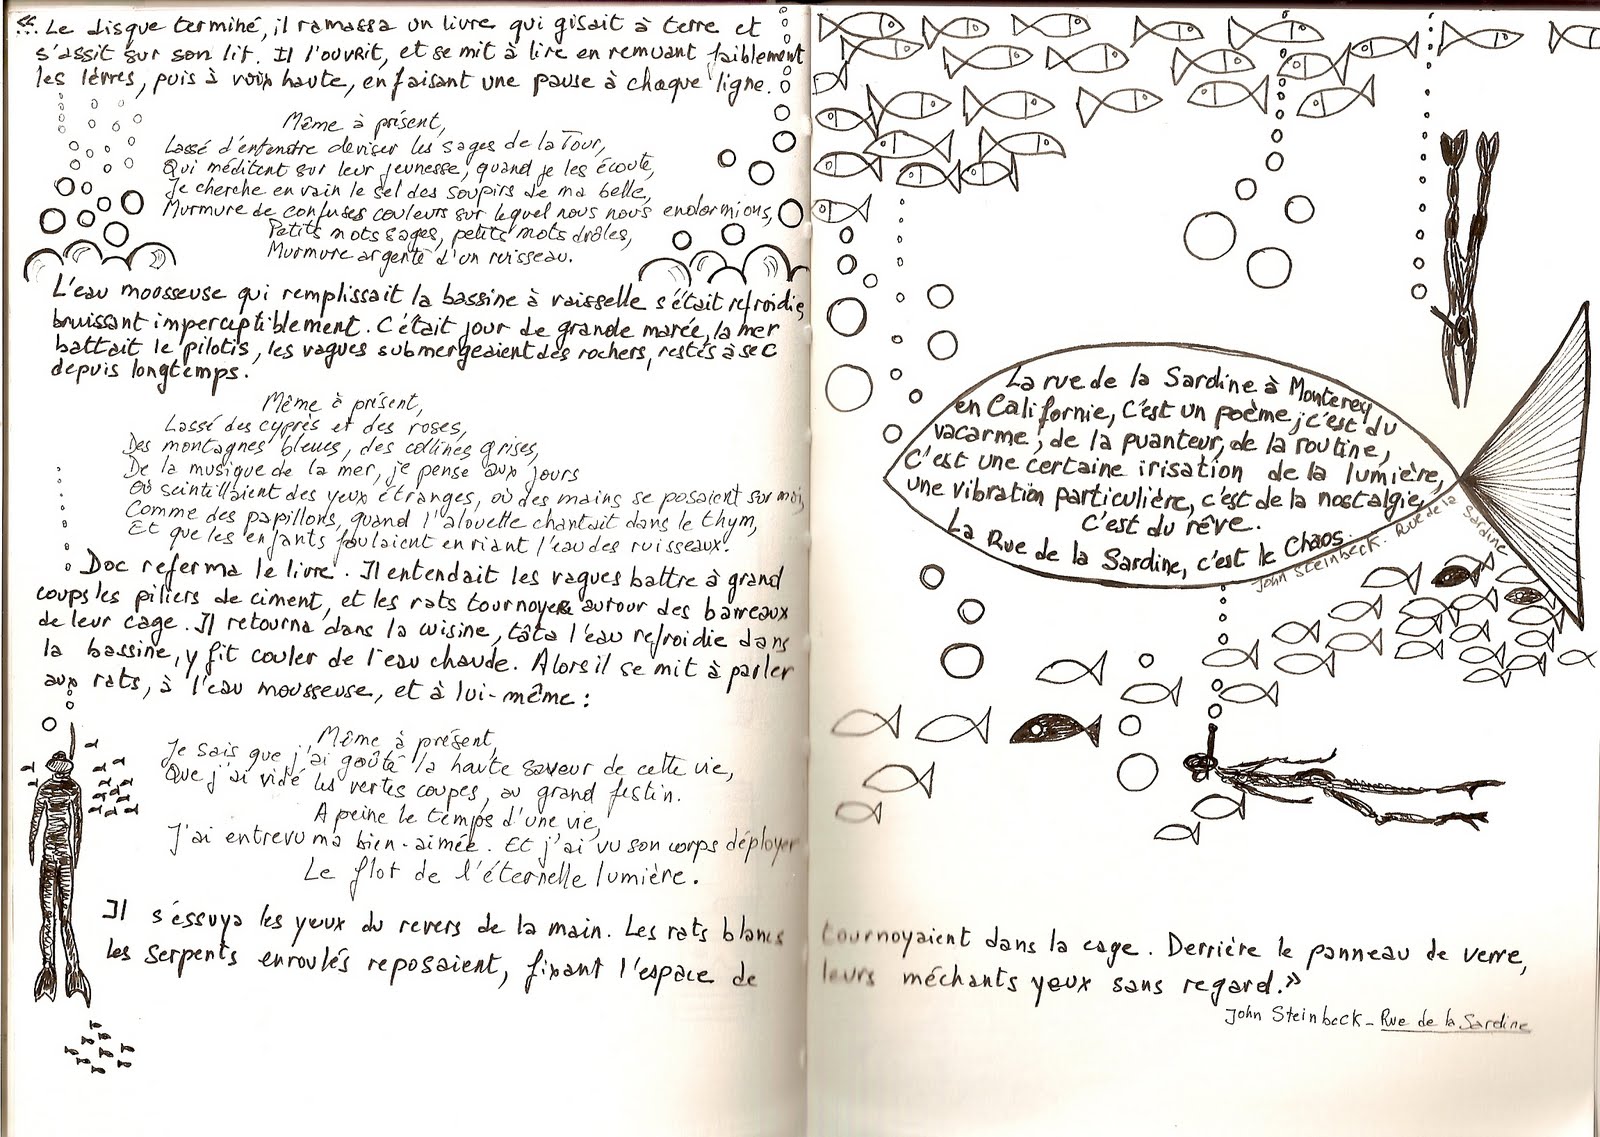 « Le disque terminé, il ramassa un livre qui gisait à terre et
s'assit sur son lit. Il l'ouvrit, et se mit à lire en remuant faiblement
les lèvres, puis à voix haute, en faisant une pause à chaque ligne.
Même à présent,
Lassé d'entendre deviser les sages de la Tour,
Qui méditent sur leur jeunesse, quand je les écoute,
Je cherche en vain le sel des soupirs de ma belle,
Murmure de confuses couleurs sur lequel nous nous endormions,
Petits mots sages, petits mots drôles,
Murmure argenté d'un ruisseau.
L'eau moosseuse qui remplissait la bassine à vaisselle s'était refroidie,
bruissant imperceptiblement. C'était jour de grande marée, la mer
battait le pilotis, les vagues submergeaient des rochers, restés à sec
depuis longtemps.
Même à présent,
Lassé des cyprès et des roses,
Des montagnes bleues, des collines grises,
De la musique de la mer, je pense aux jours
Où scintillaient des yeux étranges, où des mains se posaient sur moi,
Comme des papillons, quand l'alouette chantait dans le thym,
Et que les enfants foulaient en riant l'eau des ruisseaux.
Doc referma le livre. Il entendait les vagues battre à grand
coups les piliers de ciment, et les rats tournoyer autour des barreaux
de leur cage. Il retourna dans la cuisine, tâta l'eau refroidie dans
la bassine, y fit couler de l'eau chaude. Alors il se mit à parler
aux rats, à l'eau mousseuse, et à lui-même :
Même à présent,
Je sais que j'ai goûté la haute saveur de cette vie,
Que j'ai vidé les vertes coupes, au grand festin.
A peine le temps d'une vie,
J'ai entrevu ma bien-aimée. Et j'ai vu son corps déployer
Le flot de l'éternelle lumière.
Il s'essuya les yeux du revers de la main. Les rats blancs tournoyaient dans la cage. Derrière le panneau de verre,
les serpents enroulés reposaient, fixant l'espace de leurs méchants yeux sans regard.»
John Steinbeck - Rue de la Sardine
La rue de la Sardine à Monterey
en Californie, c'est un poème, c'est du
vacarme, de la puanteur, de la routine,
c'est une certaine irisation de la lumière,
une vibration particulière, c'est de la nostalgie,
c'est du rêve.
La Rue de la Sardine, c'est le Chaos.
John Steinbeck - Rue de la Sardine